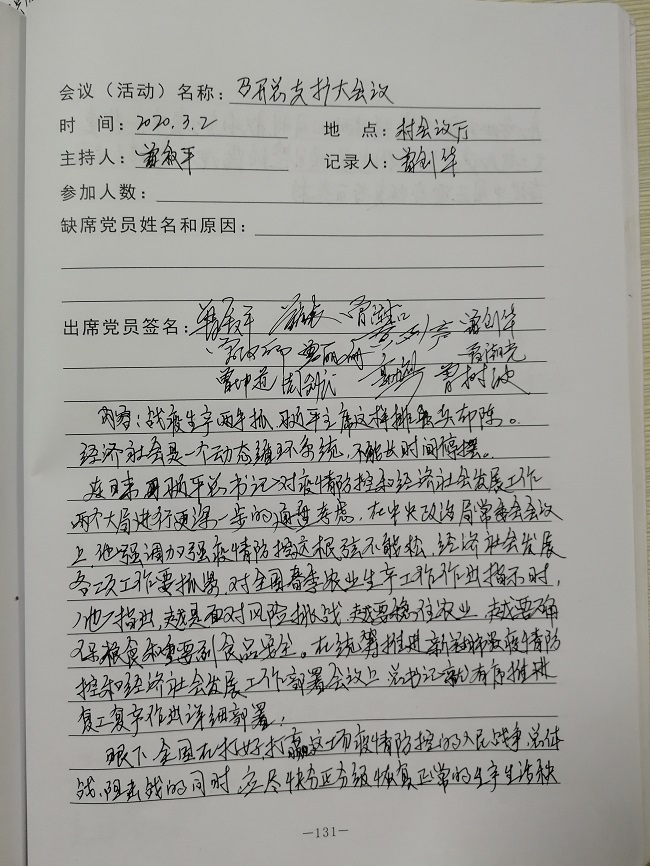 会议（活动）名称：乃开总支扩大会议
时 间：2020.3.2 地 点：村会议厅
主持人：曾叙平 记录人：曾创华
参加人数：
缺席党员姓名和原因：
出席党员签名：
曾创华
曾丽珊
曾树波
内容：战疫生产两手抓，习近平主席这样排兵布陈。
经济社会是一个动态循环系统，不能长时间停摆。
连日来 习近平总书记对疫情防控和经济社会发展工作
两个大局进行更深一步的通盘考虑。在中央政治局常委会会议
上，他强调加强疫情防控这根弦不能松，经济社会发展
各项工作要抓紧，对全国春季农业生产工作作出指示时，
他指出，越是面对风险挑战，越要稳住农业，越要确
保粮食和重要副食品安全。在统筹推进新冠肺炎疫情防
控和经济社会发展工作部署会议上，总书记就有序推进
复工复产作出详细部署：
眼下，全国在打好，打赢这场疫情防控的人民战争，总体
战、阻击战的同时，应尽快分区分级恢复正常的生产生活秩
—131—